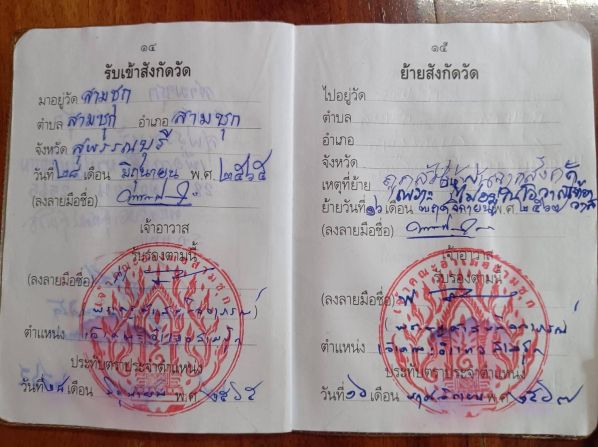 ๑๔
รับเข้าสังกัดวัด
มาอยู่วัด สามชุก
ตำบล สามชุก อำเภอ สามชุก
จังหวัด สุพรรณบุรี
วันที่ ๒๘ เดือน มิถุนายน พ.ศ. ๒๕๖๕
(ลงลายมือชื่อ)
เจ้าอาวาส
รับรองตามนี้
(ลงลายมือชื่อ)
ตำแหน่ง เจ้าคณะอำเภอสามชุก
ประทับตราประจำตำแหน่ง
วันที่ ๒๘ เดือน มิถุนายน พ.ศ. ๒๕๖๕
๑๕
ย้ายสังกัดวัด
ไปอยู่วัด
ตำบล
อำเภอ
จังหวัด
เหตุที่ย้าย
ย้ายวันที่ ๑๖ เดือน พฤศจิกายน พ.ศ. ๒๕๖๗
(ลงลายมือชื่อ)
เจ้าอาวาส
รับรองตามนี้
(ลงลายมือชื่อ)
ตำแหน่ง เจ้าคณะอำเภอสามชุก
ประทับตราประจำตำแหน่ง
วันที่ ๑๖ เดือน พฤศจิกายน พ.ศ. ๒๕๖๗